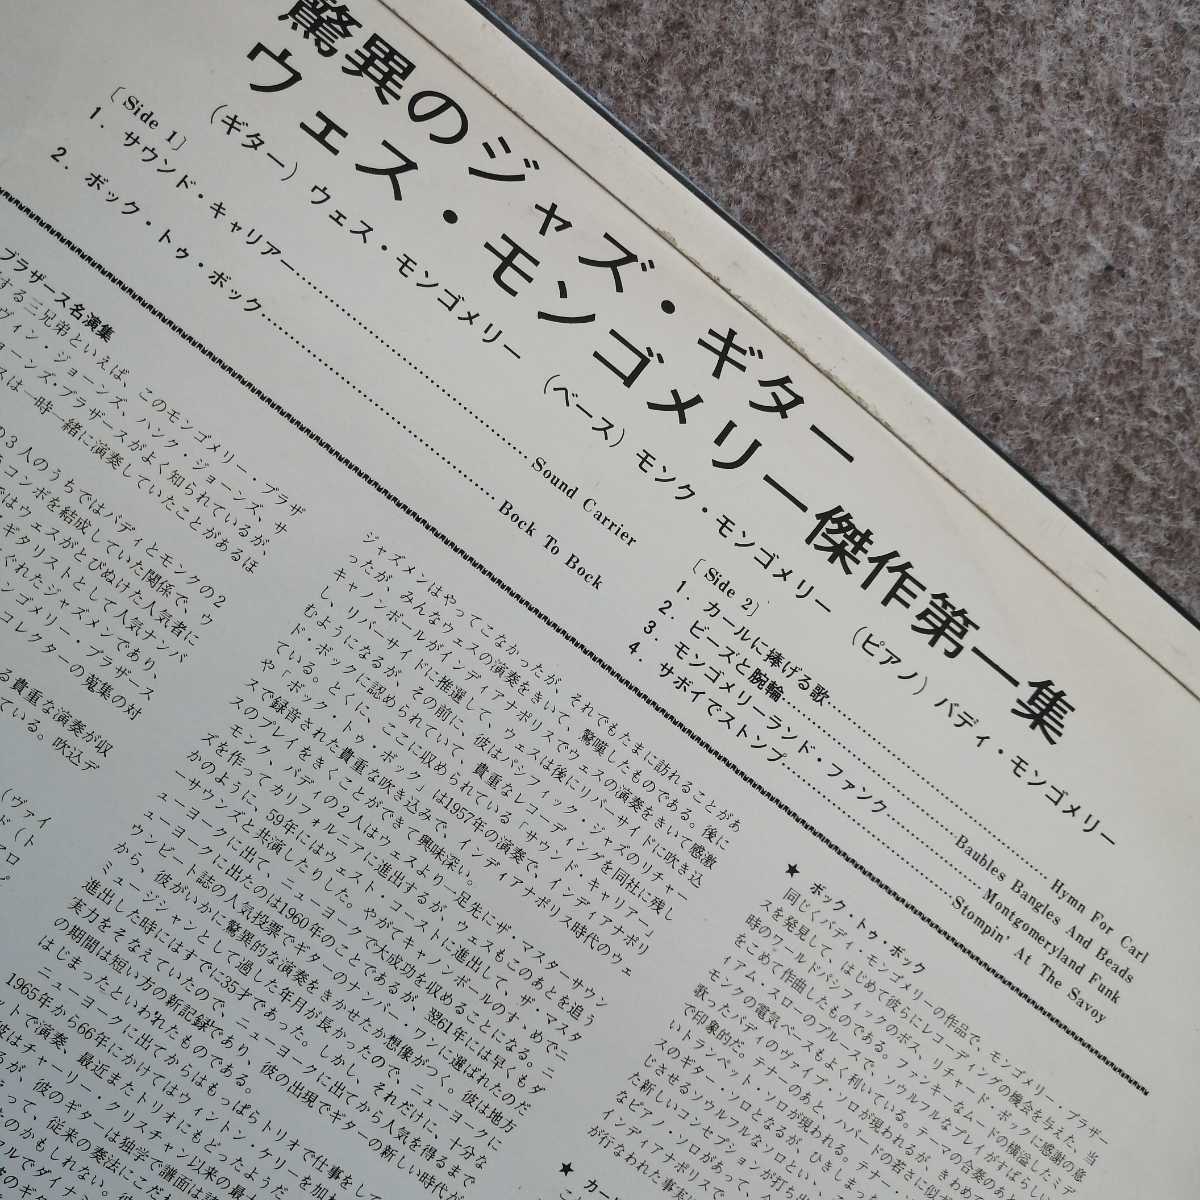 驚異のジャズ・ギター
ウェス・モンゴメリー傑作第一集
（ギター）ウェス・モンゴメリー　（ベース）モンク・モンゴメリー　（ピアノ）バディ・モンゴメリー
〔Side 1〕
1. サウンド・キャリアー……Sound Carrier
2. ボック・トゥ・ボック……Bock To Bock
〔Side 2〕
1. カールに捧げる歌……Hymn For Carl
2. ビーズと腕輪……Baubles Bangles And Beads
3. モンゴメリーランド・ファンク……Montgomeryland Funk
4. サボイでストンプ……Stompin' At The Savoy
ブラザース名演集
する三兄弟といえば、このモンゴメリー・ブラザ
ヴィン・ジョーンズ、ハンク・ジョーンズ、サ
ョーンズ・ブラザースがよく知られているが、
スは一時一緒に演奏していたことがあるほ
の3人のうちではバディとモンクの2
コンボを結成していた関係で、ウ
ではウェスがとびぬけた人気者に
・ギタリストとして人気ナンバ
ぐれたジャズメンであり、
ンゴメリー・ブラザース
コレクターの蒐集の対
る貴重な演奏が収
ている。吹込デ
（ヴァイ
ド（ト
ジャズメンはやってこなかったが、それでもたまに訪れることがあ
ったが、みんなウェスの演奏をきいて、驚嘆したものである。後に
キャノンボールがインディアナポリスでウェスの演奏をきいて感激
し、リバーサイドに推選して、ウェスは後にリバーサイドに吹き込
むようになるが、その前に、彼はパシフィック・ジャズのリチャー
ド・ボックに認められていて、貴重なレコーディングを同社に残し
ている。とくに、ここに収められている「サウンド・キャリアー」
や「ボック・トゥ・ボック」は1957年の演奏で、インディアナポリ
スで録音された貴重な吹き込みで、インディアナポリス時代のウェ
スのプレイをきくことができて興味深い。
モンク、バディの2人はウェスより一足先にザ・マスターサウン
ズを作ってカリフォルニアに進出するが、ウェスもこのあとを追う
かのように、59年にはウェスト・コーストに進出して、ザ・マスタ
ーサウンズと共演したりした。やがてキャノンボールのすゝめでニ
ューヨークに出て、ニューヨークで大成功を収めることになる。ニ
ューヨークに出たのは1960年のことであるが、翌61年には早くもダ
ウンビート誌の人気投票でギターのナンバー・ワンに選ばれたのだ
から、彼がいかに驚異的な演奏をきかせたか想像がつく。彼は地方
ミュージシャンとして過した年月が長かったので、ニューヨークに
進出した時にはすでに35才であった。しかし、それだけに、十分な
実力をそなえていたので、ニューヨークに出てから人気を得るまで
の期間は短い方の新記録であり、彼の出現でギターの新しい時代が
はじまったといわれたものである。
ニューヨークに出てからはもっぱらトリオで仕事をし
1965年から66年にかけてはウィントン・ケリーを加
ットで演奏、最近またトリオにもどったようだ
彼はチャーリー・クリスチャン以来の最大
が、彼のギターは独学で譜面は読
って、従来の奏法にこだわ
たのかもしれない。彼
★ ボック・トゥ・ボック
同じくバディ・モンゴメリーの作品で、モンゴメリー・ブラザー
スを発見して、はじめて彼らにレコーディングの機会を与えた、当
時のワールドパシフィックのボス、リチャード・ボックに感謝の意
をこめて作曲したものである。ファンキーなムードの横溢したミデ
ィアム・スローのブルースで、ソウルフルなプレイがすばらしい。
モンクの電気ベースもよく利いている。テーマの合奏のあ
歌ったバディのヴァイブ・ソロが現われるが、きわめ
で印象的だ。テナーのあと、ハバードの若さに似
いトランペット・ソロが現われる。テナー・
スのギター・ソロとなるが、ひきしまっ
じさせるソウルフルなソロといい、
た新しいコンセプションが打ち出
なピアノ・ソロがあって、
インディアナポリスで
が行なわれた事実
★ カール